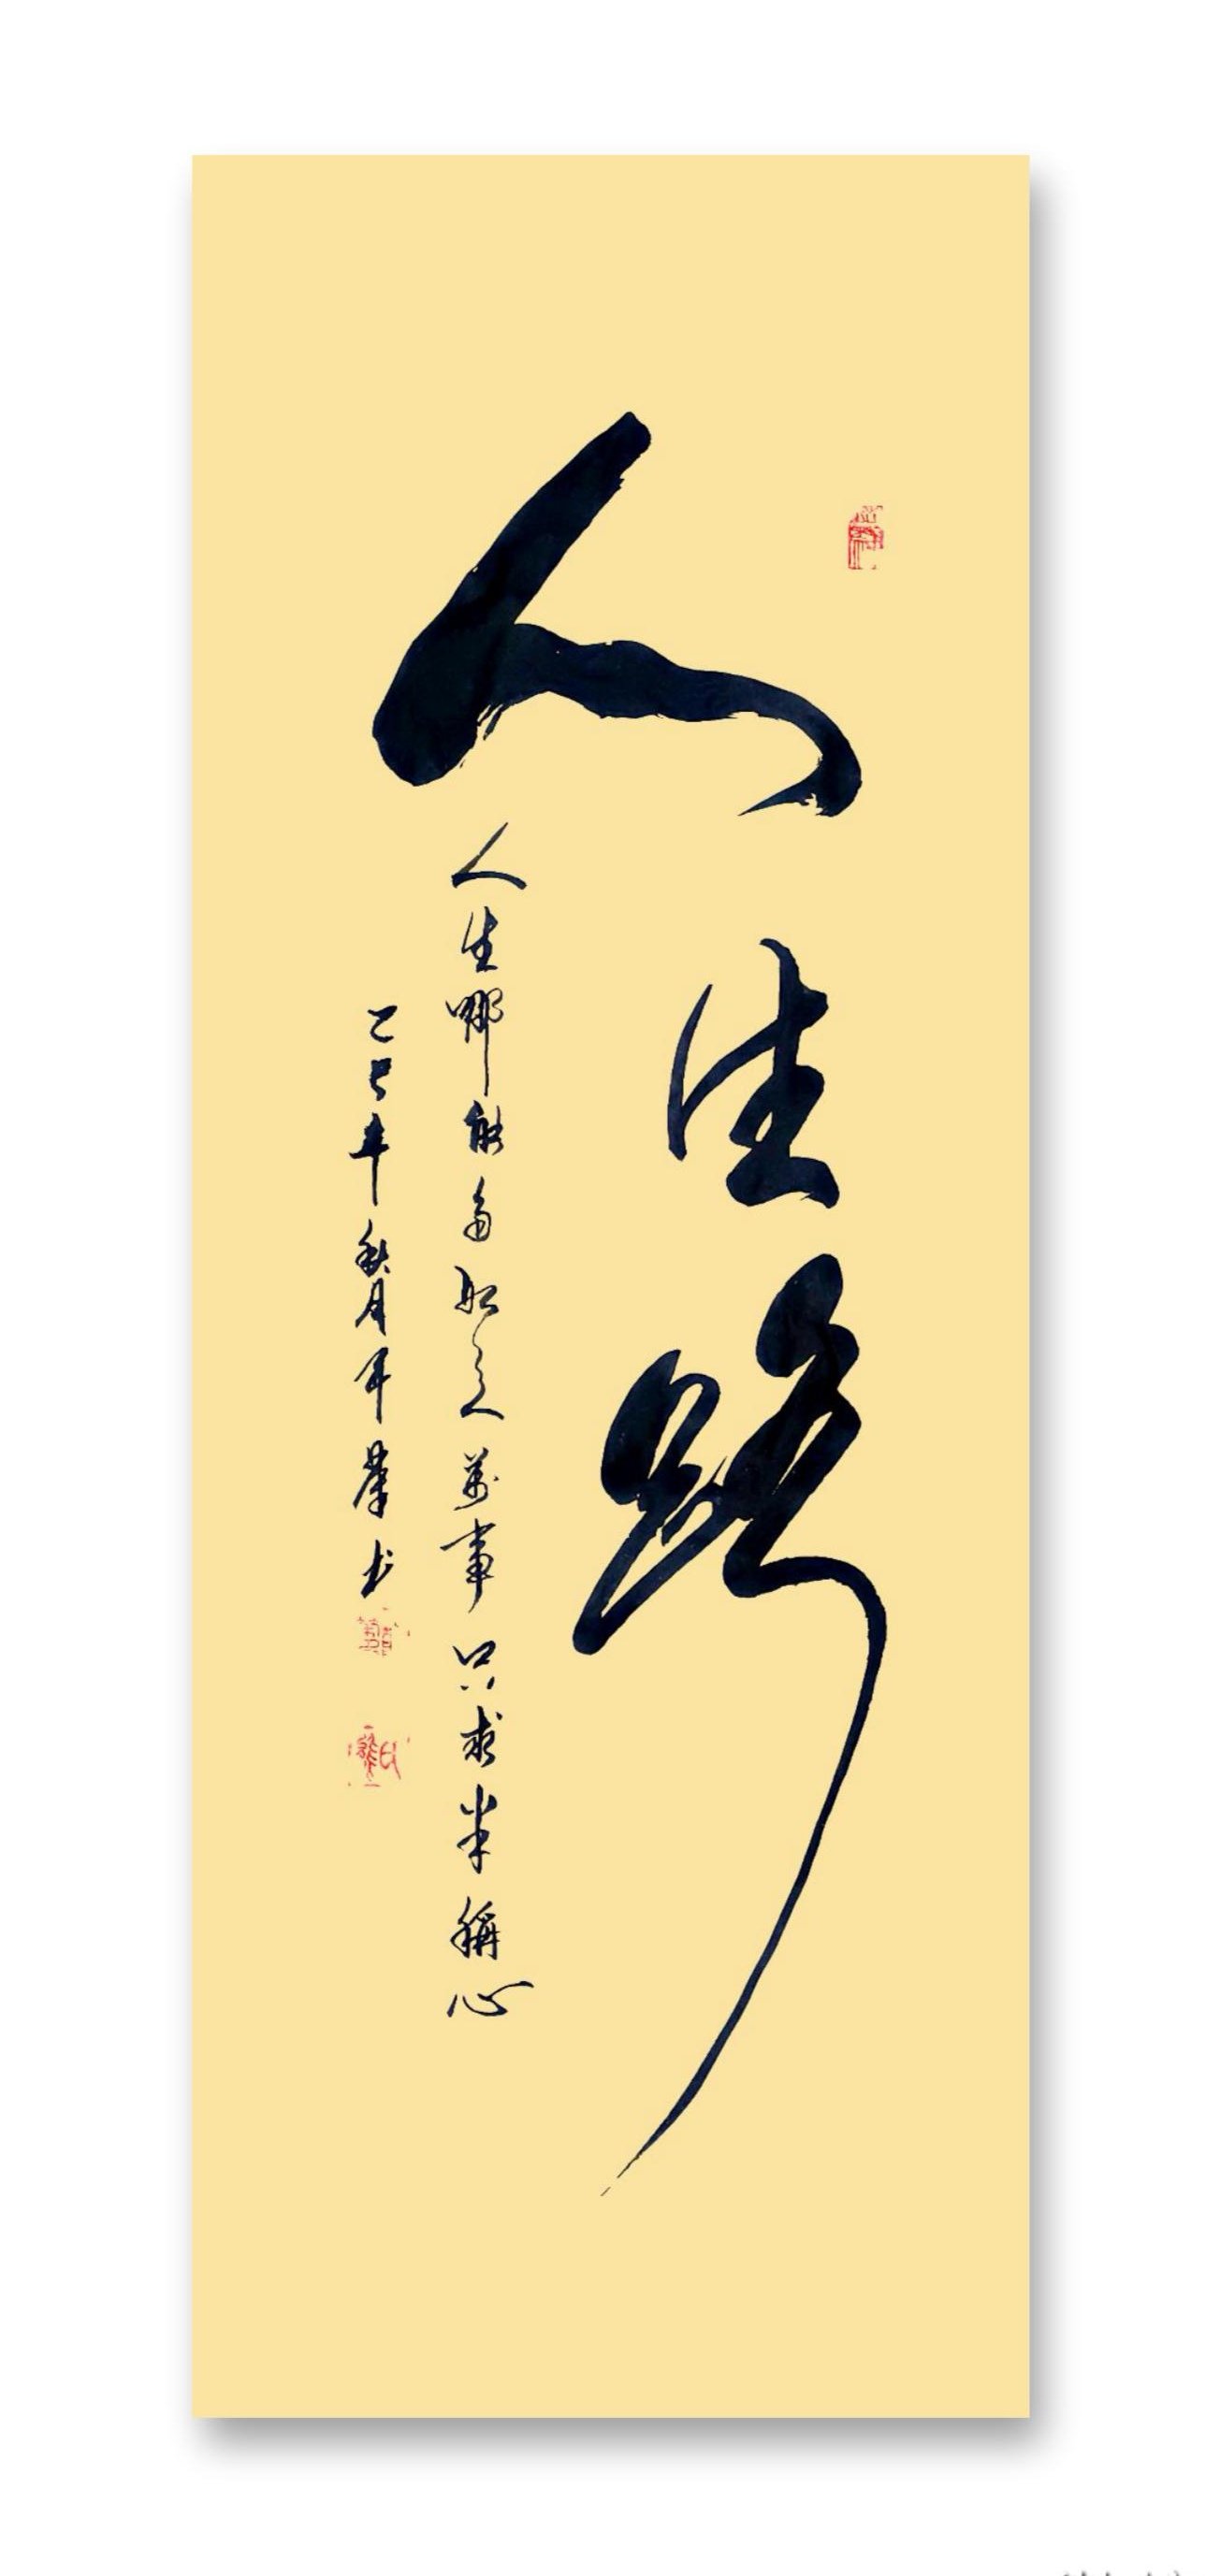 人生路
人生哪能多如意萬事只求半稱心
乙巳年秋月年華书